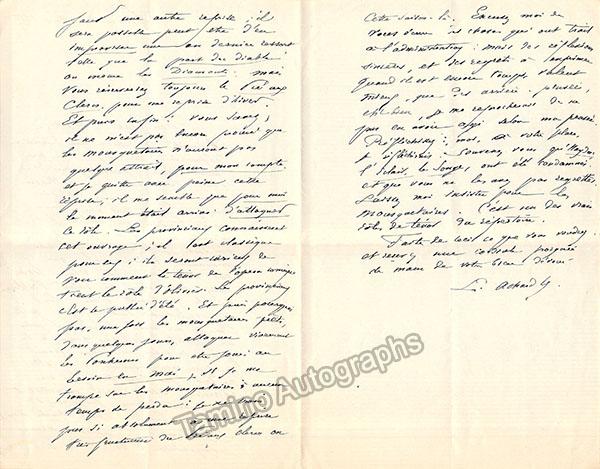 faut une autre reprise ; il
sera possible peut être d'en
improviser une en dernier ressort
telle que la part du diable
ou même les Diamants. mais
vous réservez toujours le Pré aux
Clercs pour une reprise d'hiver.
Et puis enfin ! vous savez,
il ne m'est pas encore prouvé que
les mousquetaires n'auront pas
quelque attrait, pour mon compte
et je quitte avec peine cette
; il me semble que pour moi
le moment était arrivé d'attaquer
ce rôle. Les provinciaux connaissent
cet ouvrage ; il est classique
pour eux ; ils seront curieux de
voir comment le ténor de l'opéra comique
tient le rôle d'Olivier. Le provincial
c'est le public d'été. Et puis
pas, une fois les mousquetaires prêts,
dans quelques jours, attaquer vivement
les pour être joué au
besoin en mai, si je me
trompe sur les mousquetaires ; aucun
temps de perdu ; je ne
pas si absolument
du Pré aux clercs en
cette saison-là. Excusez moi de
vous dire des choses qui ont trait
à l'administration ; mais des réflexions
sincères, et des regrets à exprimer
quand il est encore temps valent
mieux, que ces arrière pensées,
eh bien, je me reprocherais de ne
pas en avoir agi selon ma pensée.
Réfléchissez ; moi, à votre place,
je réfléchirais. Souvenez vous qu'Haydée,
l'éclair, le Songe, ont été condamnés
et que vous ne les avez pas regrettés.
Laissez moi insister pour les
Mousquetaires. C'est un des vrais
rôles de ténor du répertoire.
Faites de ceci ce que vous voudrez
et recevez une cordiale poignée
de main de votre bien dévoué
L. Achard
Tamino Autographs